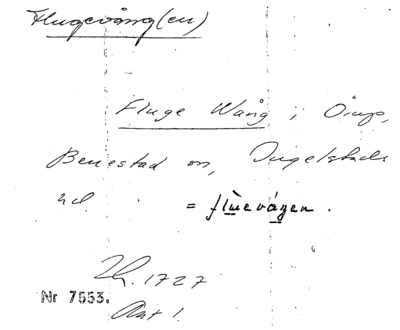 Flugevång(en)
Fluge Wång i Örup,
Benestad sn, Ingelstads
hd = flùevá̱gen.
Lh. 1727
Nr 7553.
Akt 1.